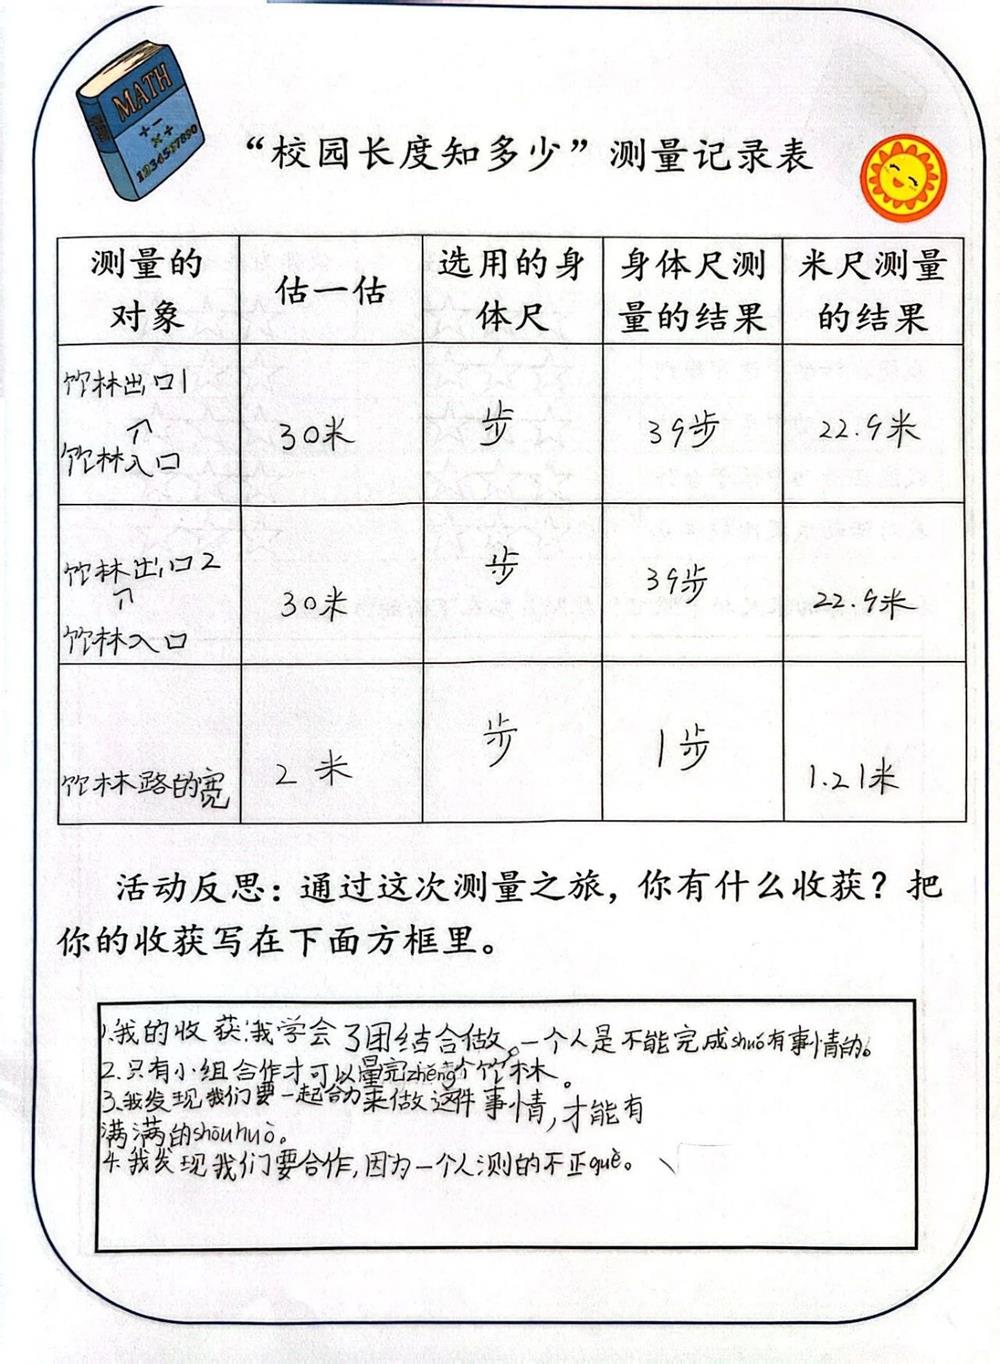 MATH
+ -
× +
1234567890
“校园长度知多少”测量记录表
测量的对象 估一估 选用的身体尺 身体尺测量的结果 米尺测量的结果
竹林出口1
↗
竹林入口 30米 步 39步 22.9米
竹林出口2
↗
竹林入口 30米 步 39步 22.9米
竹林路的宽 2米 步 1步 1.21米
活动反思：通过这次测量之旅，你有什么收获？把
你的收获写在下面方框里。
1.我的收获:我学会了团结合做。一个人是不能完成shuǒ有事情的。
2.只有小组合作才可以量完zhěng个竹林。
3.我发现我们要一起合力来做这件事情,才能有
满满的shōuhuò。
4.我发现我们要合作,因为一个人测的不正què。